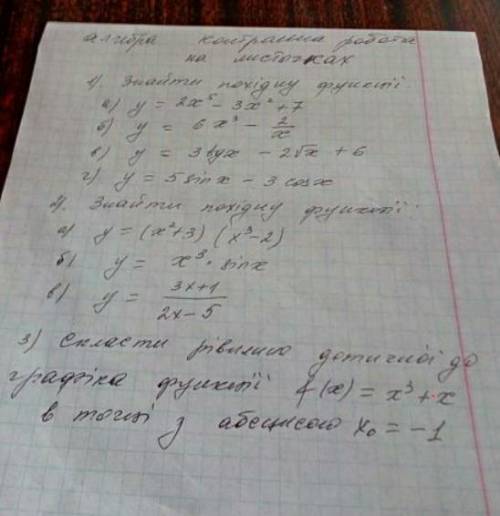 алгебра контрольна робота
на листочках
1). Знайти похідну функції.
а) y = 2x⁵ - 3x² + 7
б) y = 6x³ - 2/x
в) y = 3tgx - 2√x + 6
г) y = 5sinx - 3cosx
2). Знайти похідну функції.
а) y = (x²+3) (x³-2)
б) y = x³ · sinx
в) y = (3x+1)/(2x-5)
3) Скласти рівняння дотичної до
графіка функції f(x) = x³ + x
в точці з абсцисою x₀ = -1